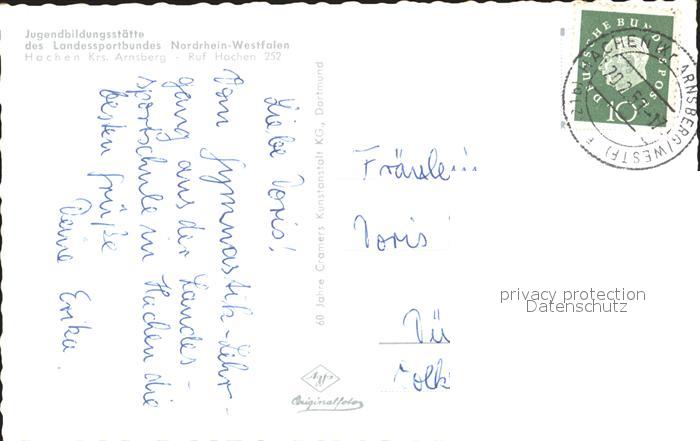 Jugendbildungsstätte
des Landessportbundes Nordrhein-Westfalen
Hachen Krs. Arnsberg - Ruf Hachen 252
Liebe Doris!
Vom Gymnastik-Lehr-
gang aus der Landes-
sportschule in Hachen die
besten Grüße
Deine Erika.
60 Jahre Cramers Kunstanstalt KG., Dortmund
Agfa
Originalfoto
DEUTSCHE BUNDESPOST
10
HACHEN (KR ARNSBERG/WESTF)
Fräulein
Doris
Dü
privacy protection
Datenschutz